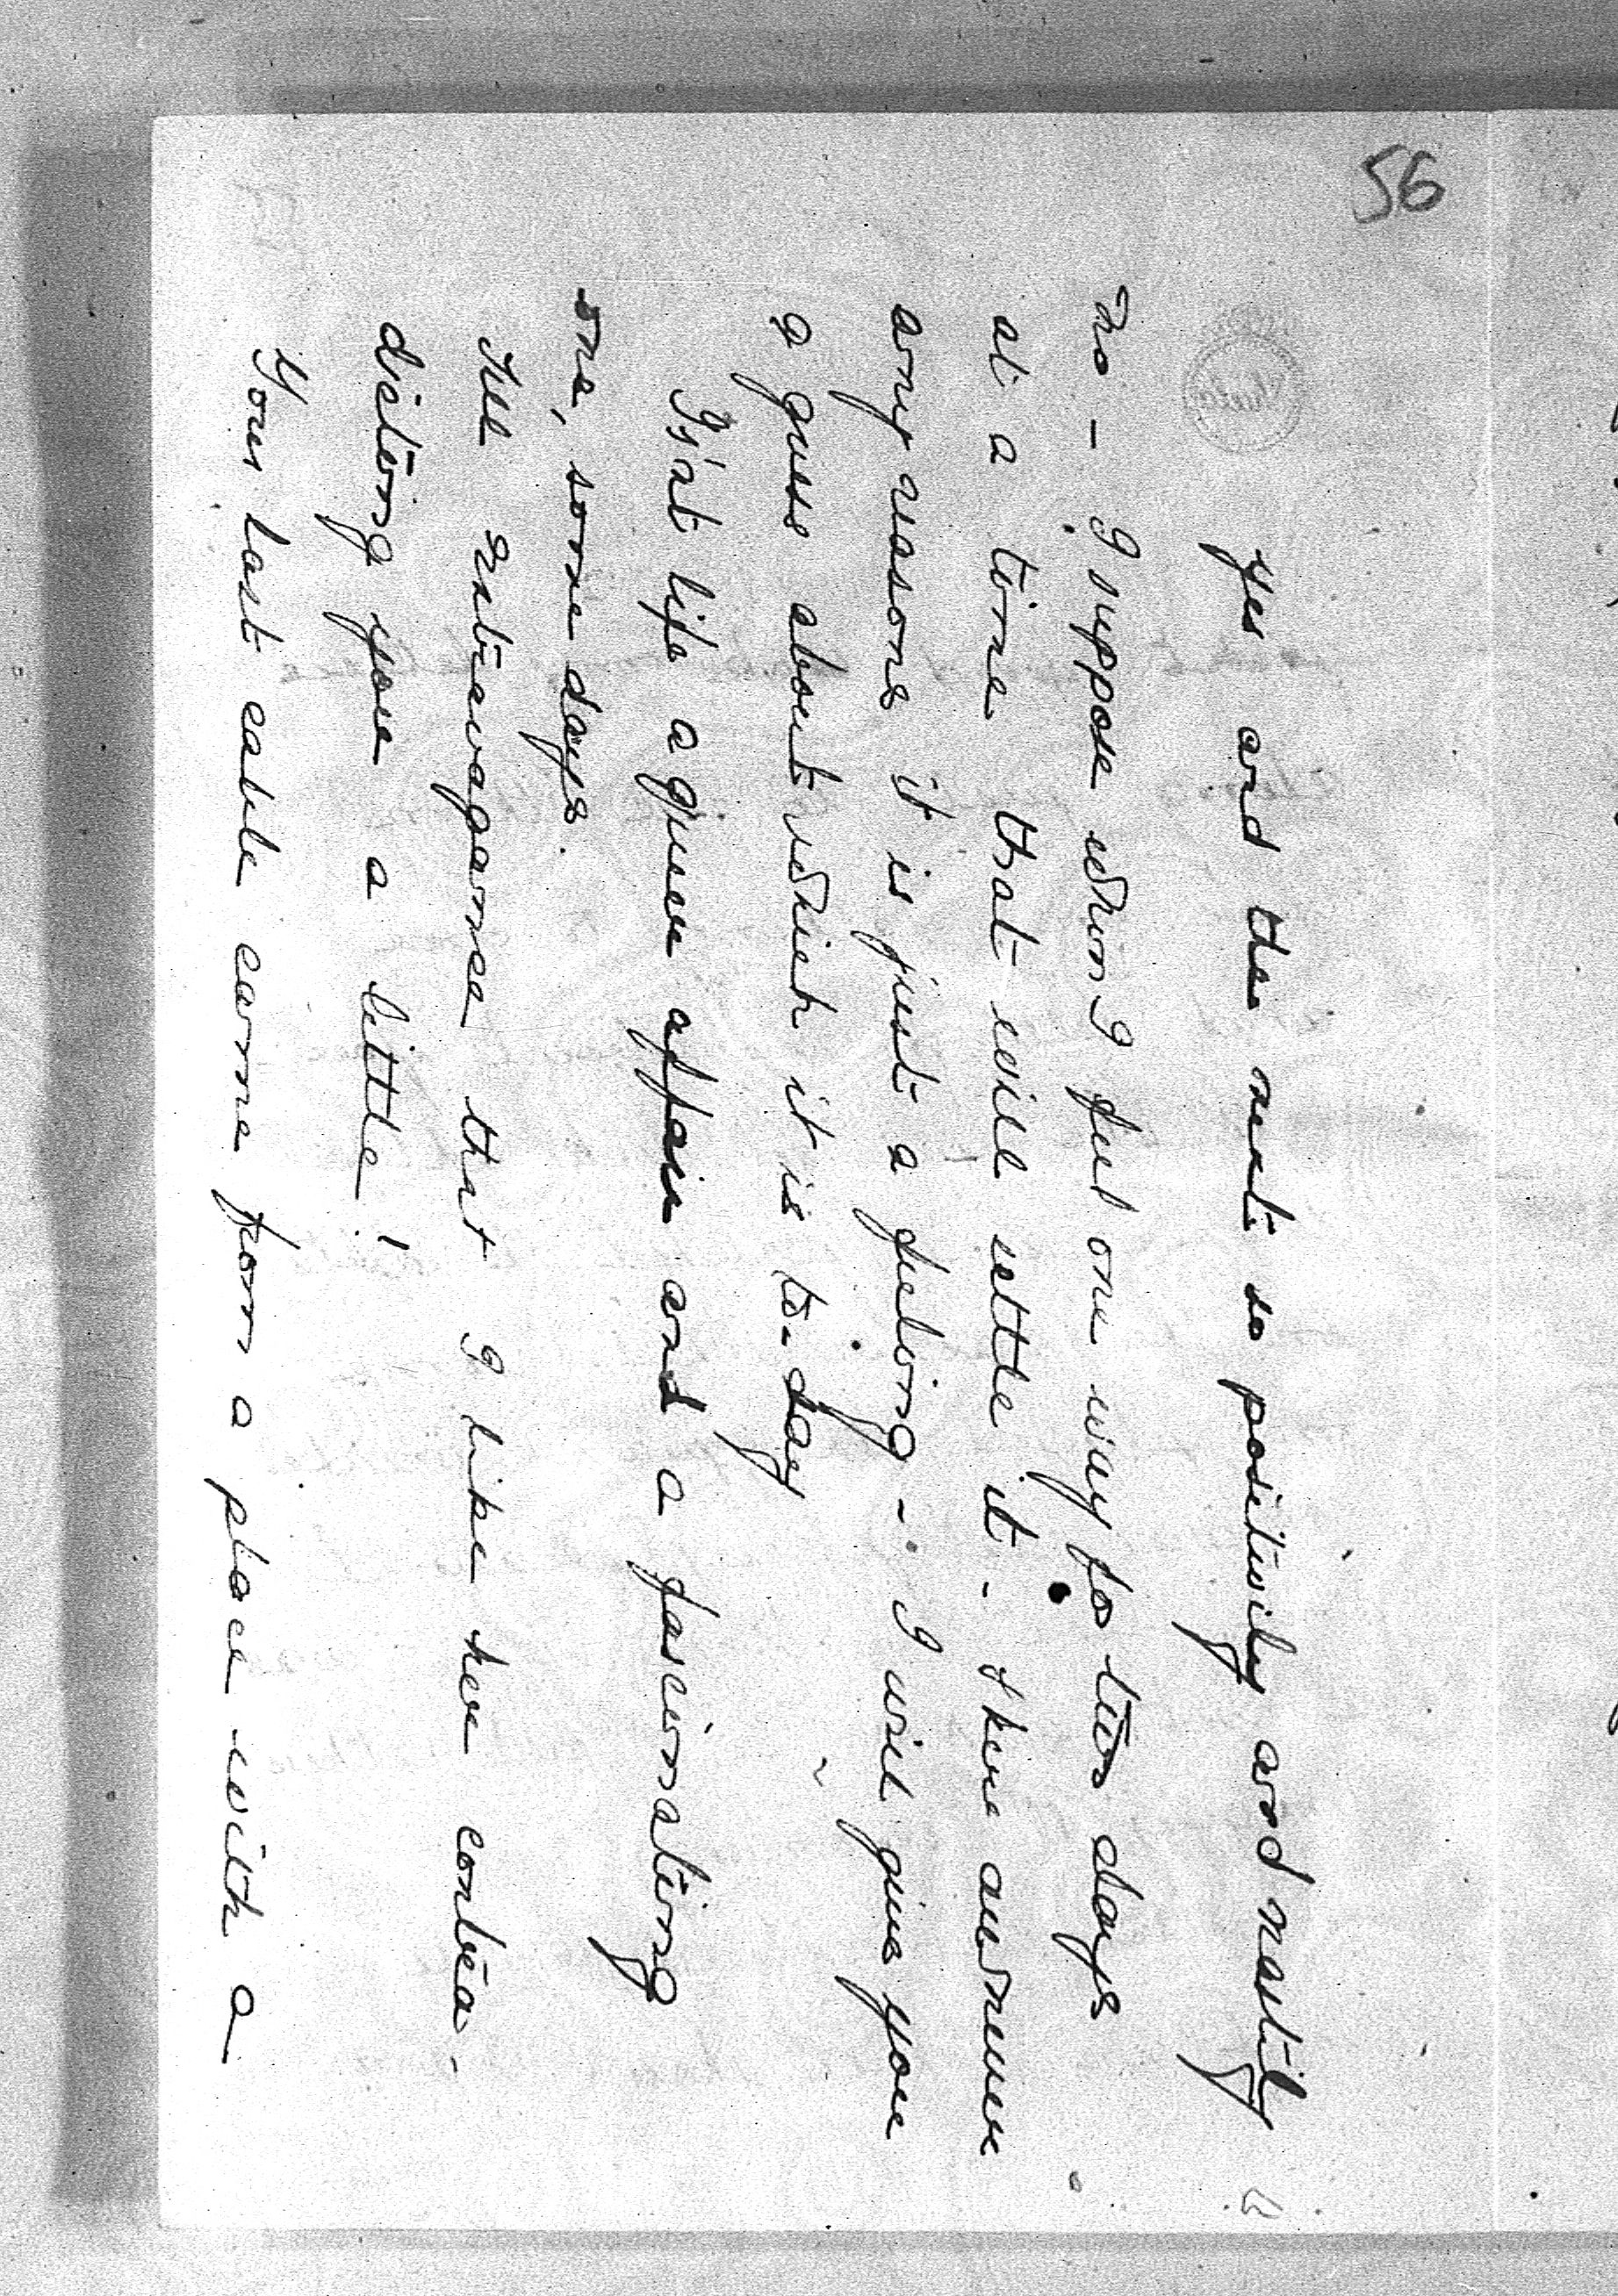 56
yes and the next so positively and nastily
no – I suppose when I feel one way for two days
at a time that will settle it. There are never
any reasons it is just a feeling – I will give you
a guess about which it is to-day
Is'nt life a queer affair and a fascinating
one, some days.
Tell Extravagance that I like her contra-
dicting you a little!
Your last cable came from a place with a